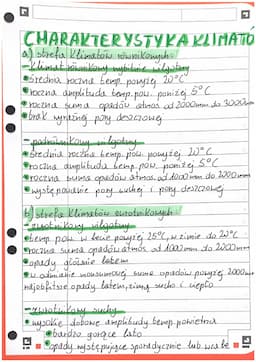 CHARAKTERYSTYKA KLIMATÓ
a) strefa klimatów równikowych:
- klimat równikowy wybitnie wilgotny
• średnia roczna temp. powyżej 20°C
• roczna amplituda temp. pow. poniżej 5°C
• roczna suma opadów atmos. od 2000mm do 3000mm
• brak wyraźnej pory deszczowej
- podrównikowy wilgotny
• średnia roczna temp. pow. powyżej 20°C
• roczna amplituda temp. pow. powyżej 5°C
• roczna suma opadów atmos. od 1000 mm do 2000mm
• występowanie pory suchej i pory deszczowej
b) strefa klimatów zwrotnikowych:
- zwrotnikowy wilgotny
• temp. pow. w lecie powyżej 25°C, w zimie do 20°C
• roczna suma opadów atmos. od 1000 mm do 2000mm
• opady głównie latem
• w odmianie monsunowej suma opadów powyżej 2000mm
najobfitsze opady latem, zimą sucho i ciepło
- zwrotnikowy suchy
• wysokie dobowe amplitudy temp. powietrza
• bardzo gorące lato
• opady występujące sporadycznie lub wcale